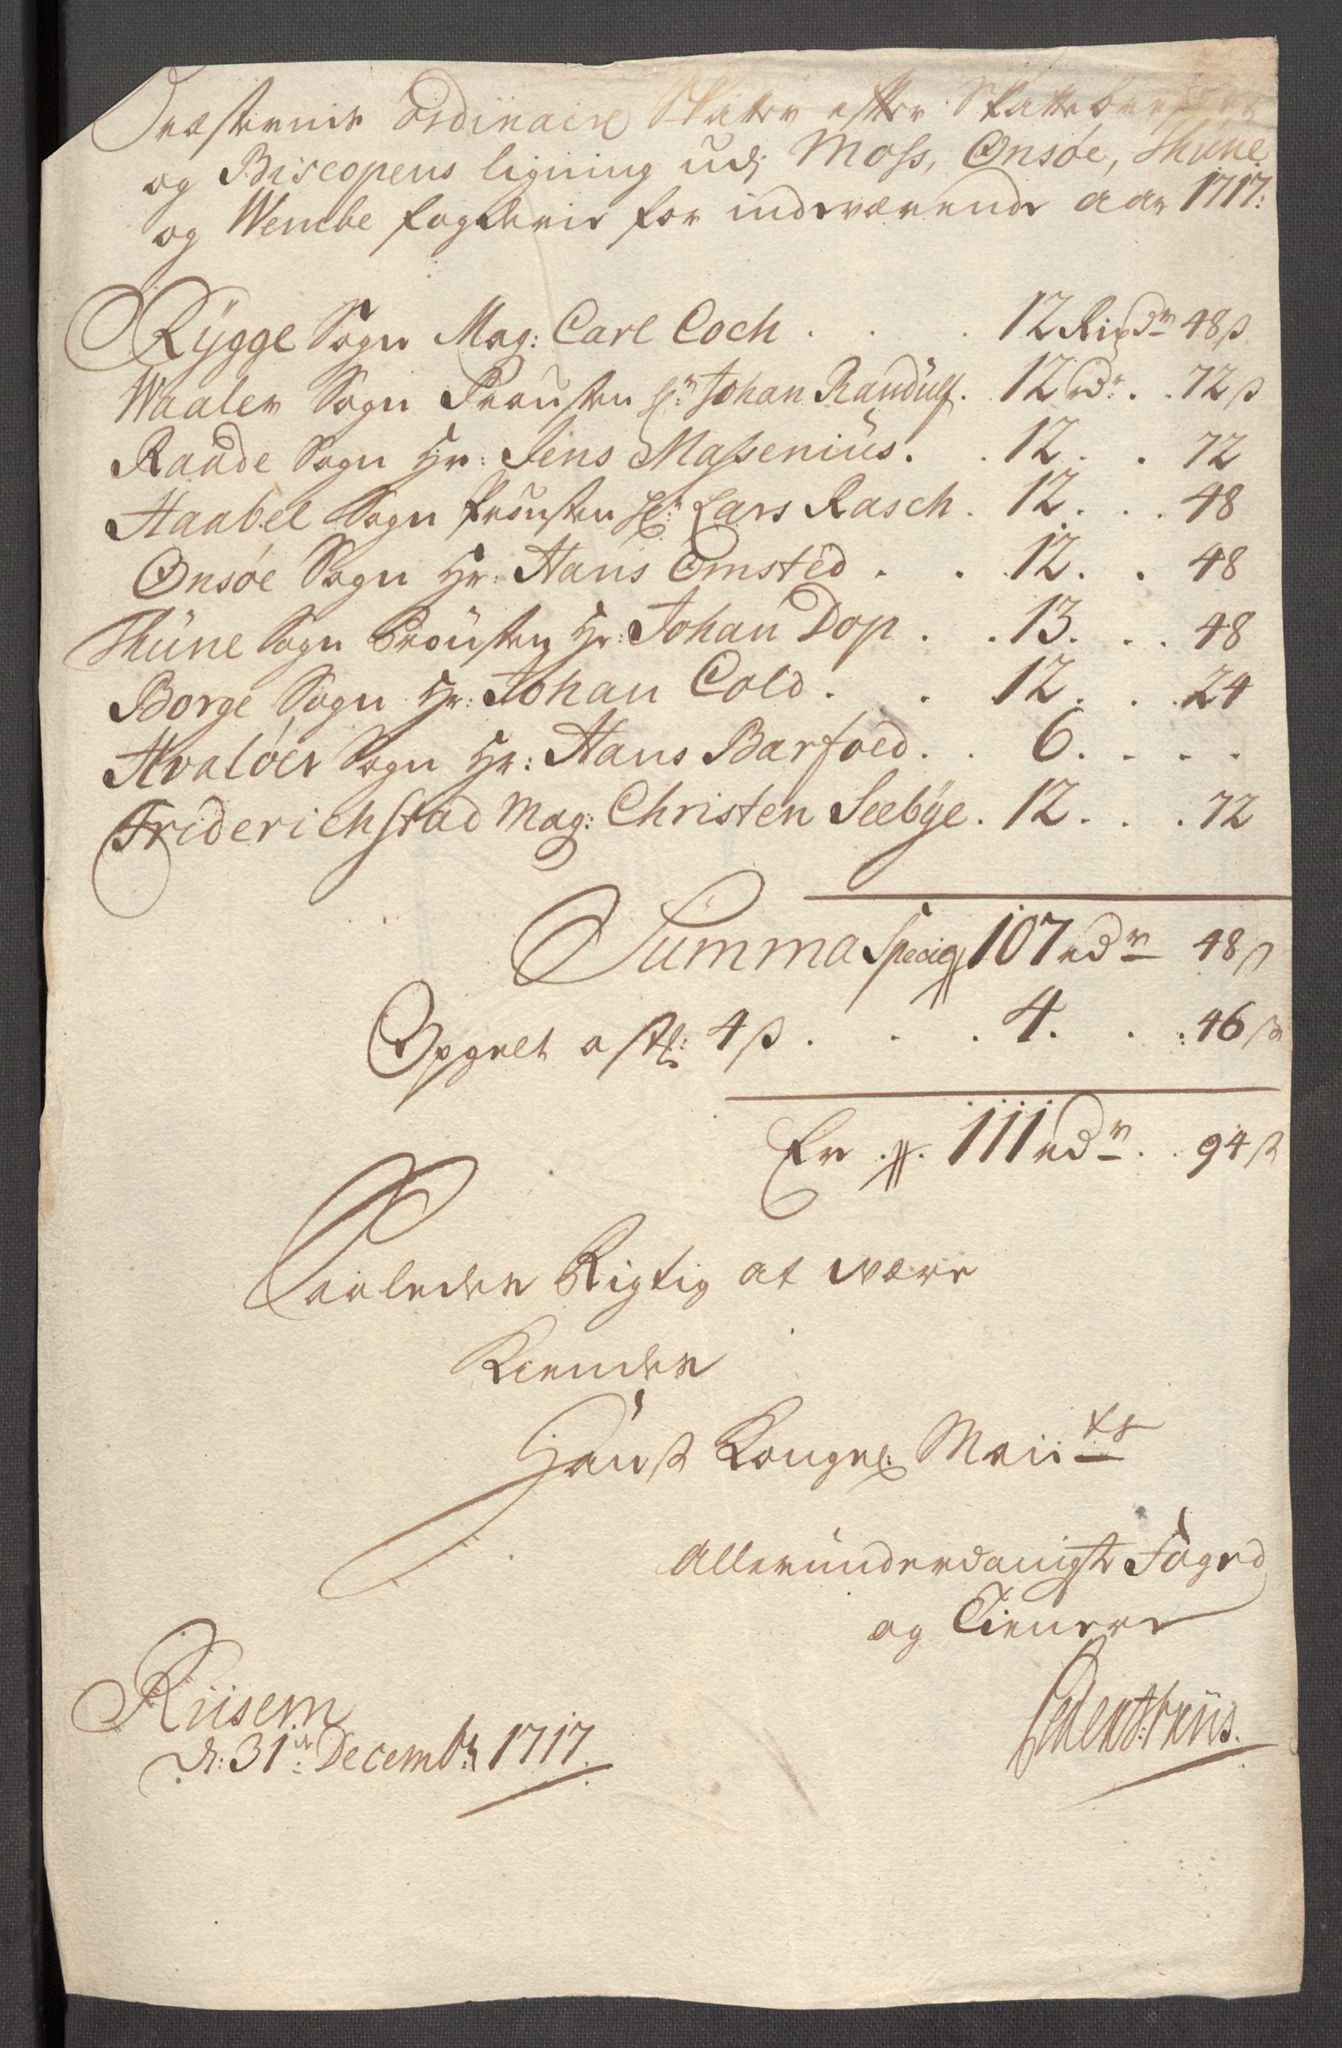 Præsternis Ordinaire Skatter efter Skatte
og Biscopens ligning udj Moss, Onsøe, Thune
og Wembe fogderie for indeværende aar 1717:
Rygge Sogn Mag: Carl Coch . . . 12 Rixdr 48 ß
Waaler Sogn Prousten Hr: Johan Randulf. 12 rdr . . 72 ß
Raade Sogn Hr: Jens Massenius. . 12 . . 72
Haabel Sogn Prousten Hr: Lars Rasch . 12 . . . 48
Onsøe Sogn Hr: Hans Omsted . . 12. . 48
Thune Sogn Prousten Hr: Johan Dop . . 13. . . 48
Borge Sogn Hr: Johan Cold . . 12. . . 24
Hvaløer Sogn Hr: Hans Barfoed. . 6. . . . .
Friderichstad Mag: Christen Seebye. 12. . . 72
Summa Speciss 107 rdr 48 ß
Opgelt a st: 4 ß . . . 4. . . 46 ß
Er . ss . 111 rdr . . 94 ß
Saaledes Rigtig at være
Kiender
Hans Kongel: Maiits
Allerunderdanigste Foged
og Tienere
Riisem
d: 31te Decembr 1717.